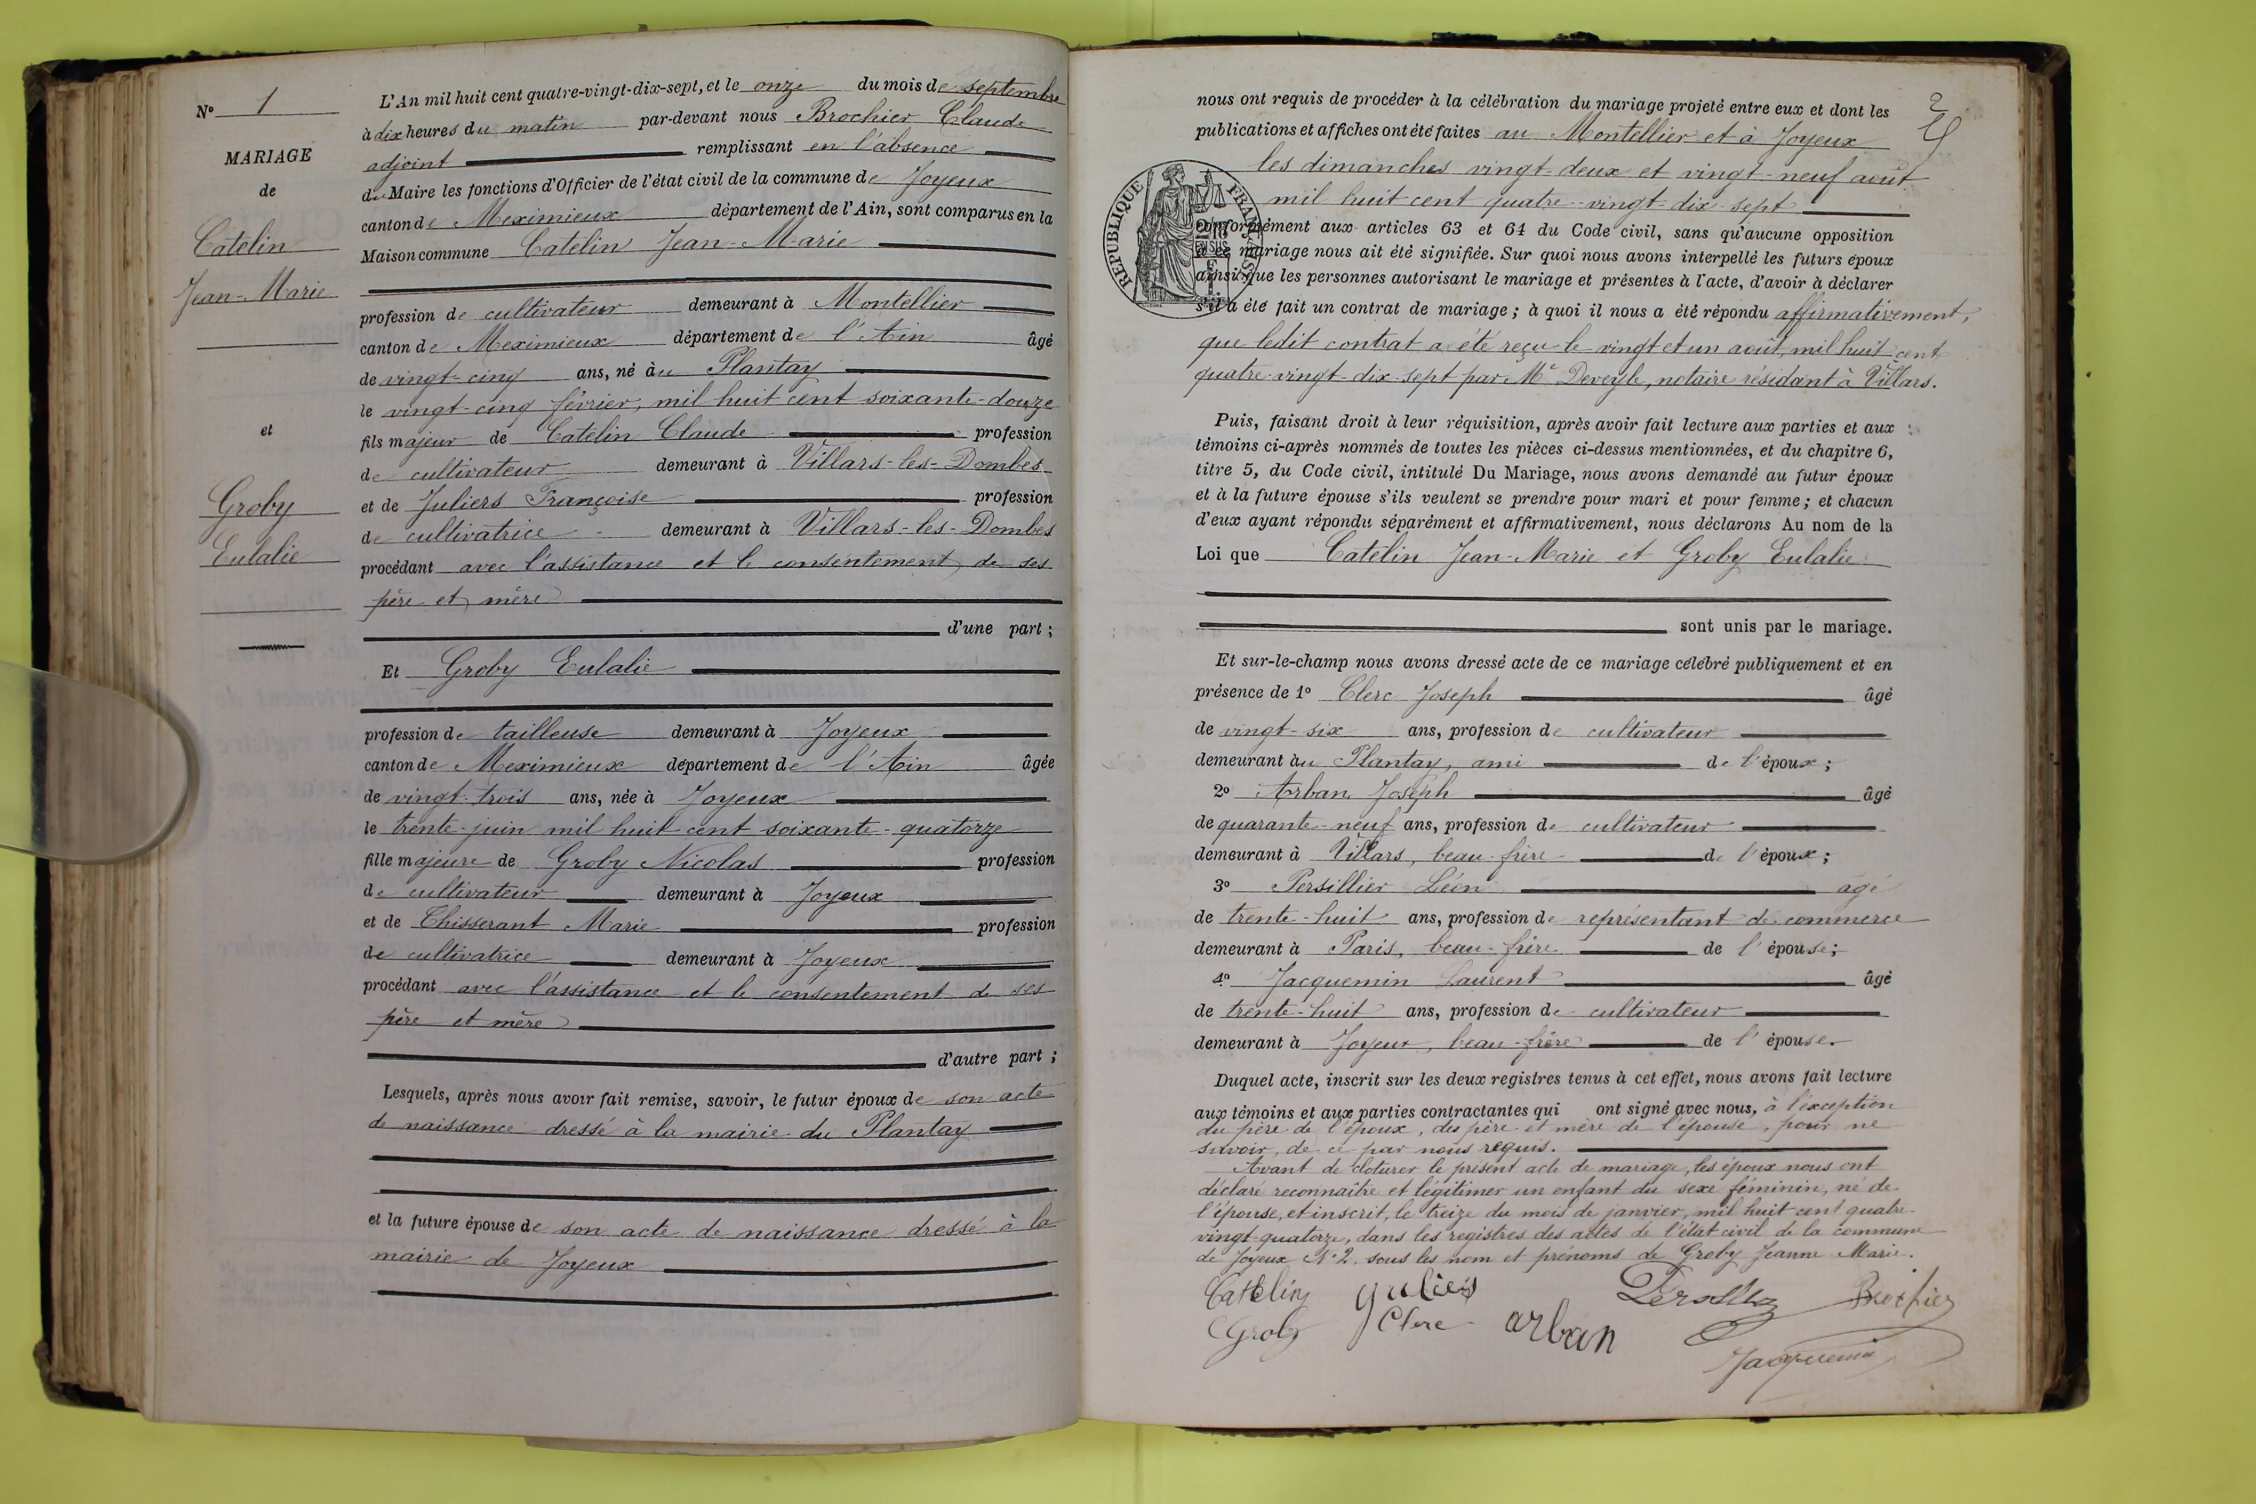 N° 1
MARIAGE
de
Catelin
Jean-Marie
et
Groby
Eulalie
L'An mil huit cent quatre-vingt-dix-sept, et le onze du mois de septembre
à dix heures du matin par-devant nous Brochier Claude
adjoint remplissant en l'absence
du Maire les fonctions d'Officier de l'état civil de la commune de Joyeux
canton de Meximieux département de l'Ain, sont comparus en la
Maison commune Catelin Jean-Marie
profession de cultivateur demeurant à Montellier
canton de Meximieux département de l'Ain âgé
de vingt-cinq ans, né au Plantay
le vingt-cinq février, mil huit cent soixante-douze
fils majeur de Catelin Claude profession
de cultivateur demeurant à Villars-les-Dombes
et de Juliers Françoise profession
de cultivatrice demeurant à Villars-les-Dombes
procédant avec l'assistance et le consentement de ses
père et mère
d'une part ;
Et Groby Eulalie
profession de tailleuse demeurant à Joyeux
canton de Meximieux département de l'Ain âgée
de vingt-trois ans, née à Joyeux
le trente juin mil huit cent soixante-quatorze
fille majeure de Groby Nicolas profession
de cultivateur demeurant à Joyeux
et de Chisserant Marie profession
de cultivatrice demeurant à Joyeux
procédant avec l'assistance et le consentement de ses
père et mère
d'autre part ;
Lesquels, après nous avoir fait remise, savoir, le futur époux de son acte
de naissance dressé à la mairie du Plantay
et la future épouse de son acte de naissance dressé à la
mairie de Joyeux
2
nous ont requis de procéder à la célébration du mariage projeté entre eux et dont les
publications et affiches ont été faites au Montellier et à Joyeux
les dimanches vingt-deux et vingt-neuf août
mil huit cent quatre-vingt-dix-sept
RÉPUBLIQUE FRANÇAISE
conformément aux articles 63 et 64 du Code civil, sans qu'aucune opposition
à ce mariage nous ait été signifiée. Sur quoi nous avons interpellé les futurs époux
ainsi que les personnes autorisant le mariage et présentes à l'acte, d'avoir à déclarer
s'il a été fait un contrat de mariage ; à quoi il nous a été répondu affirmativement,
que ledit contrat a été reçu le vingt et un août, mil huit cent
quatre-vingt-dix-sept par Me Deveyle, notaire résidant à Villars.
Puis, faisant droit à leur réquisition, après avoir fait lecture aux parties et aux
témoins ci-après nommés de toutes les pièces ci-dessus mentionnées, et du chapitre 6,
titre 5, du Code civil, intitulé Du Mariage, nous avons demandé au futur époux
et à la future épouse s'ils veulent se prendre pour mari et pour femme ; et chacun
d'eux ayant répondu séparément et affirmativement, nous déclarons Au nom de la
Loi que Catelin Jean-Marie et Groby Eulalie
sont unis par le mariage.
Et sur-le-champ nous avons dressé acte de ce mariage célébré publiquement et en
présence de 1° Clerc Joseph âgé
de vingt-six ans, profession de cultivateur
demeurant au Plantay, ami de l'époux ;
2° Arban Joseph âgé
de quarante-neuf ans, profession de cultivateur
demeurant à Villars, beau-frère de l'époux ;
3° Persillier Léon âgé
de trente-huit ans, profession de représentant de commerce
demeurant à Paris, beau-frère de l'épouse ;
4° Jacquemin Laurent âgé
de trente-huit ans, profession de cultivateur
demeurant à Joyeux, beau-frère de l'épouse.
Duquel acte, inscrit sur les deux registres tenus à cet effet, nous avons fait lecture
aux témoins et aux parties contractantes qui ont signé avec nous, à l'exception
du père de l'époux, des père et mère de l'épouse, pour ne
savoir, de ce par nous requis.
Avant de cloturer le présent acte de mariage, les époux nous ont
déclaré reconnaître et légitimer un enfant du sexe féminin, né de
l'épouse, et inscrit, le treize du mois de janvier, mil huit cent quatre-
vingt-quatorze, dans les registres des actes de l'état civil de la commune
de Joyeux N° 2, sous les nom et prénoms de Groby Jeanne Marie.
Catelin Juliers Brochier
Groby Clerc Arban
Jacquemin